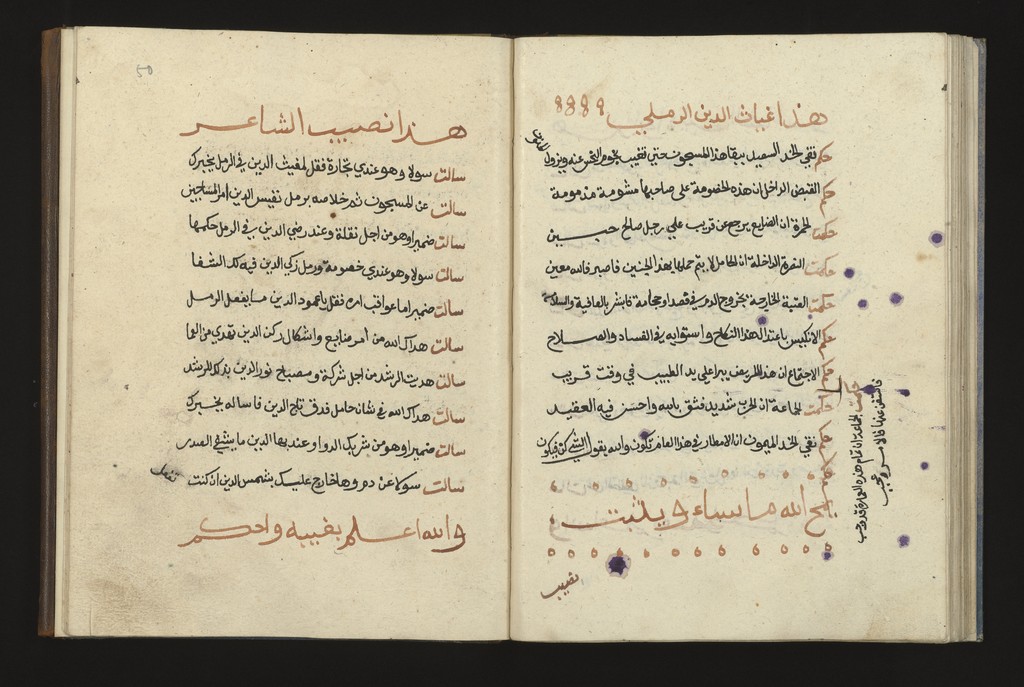 هذا غياث الدين الرملي
حكم نقي الخد السعيد ببقا هذا المسجون حتى تغيب نجوم النحس عنه ويزول
حكم القبض الداخل ان هذه الخصومة على صاحبها مشومة مذمومة
حكمت الحمرة ان الضايع يرجع عن قريب على رجل صالح
حكمت النصرة الداخلة ان الحامل لا يتم حملها بهذا الجنين فاصبر فالله معين
حكمت العتبة الخارجة بخروج الدم في فصد او حجامة فابشر بالعافية والسلامة
حكم الانكيس باعتدال هذا النكاح واستوايه في الفساد والصلاح
حكم الاجتماع ان هذا المريض يبرا على يد الطبيب في وقت قريب
حكمت الجماعة ان الحرب شديد فثق بالله واحسن فيه العقيد
حكم نقي الخد الميمون ان الامطار في هذا العام تكون والله يقول للشي كن فيكون
يمح الله ما يشاء ويثبت
حكمت الجماعة ان تمام هذه العمارة قد وجب
فاستعن عنها فالامر عجب
نصيب
50
هذا نصيب الشاعر
سالت سولا وهو عندي تجارة فقل لمغيث الدين في الرمل يخبرك
سالت عن المسجون ثم خلاصه برمل نفيس الدين امر المساجين
سالت ضميرا وهو من اجل نقلة وعند رضي الدين في الرمل حكمها
سالت سولا وهو عندي خصومة ورمل زكي الدين فيه لك الشفا
سالت ضميرا ما عواقب امره فقل يا عمود الدين ما يفعل الرمل
سالت هداك الله من أمر ضايع واشكال ركن الدين تهدي من العما
سالت هديت الرشد من اجل شركة ومصباح نور الدين بذلك للرشد
سالت هداك الله في شان حامل فدق تاج الدين فاساله يخبرك
سالت ضميرا وهو من شرب الدوا وعند بها الدين ما يشفي الصدر
سالت سولا عن دم وها خارج عليك بشمس الدين ان كنت تفعل
والله اعلم بغيبه واحكم